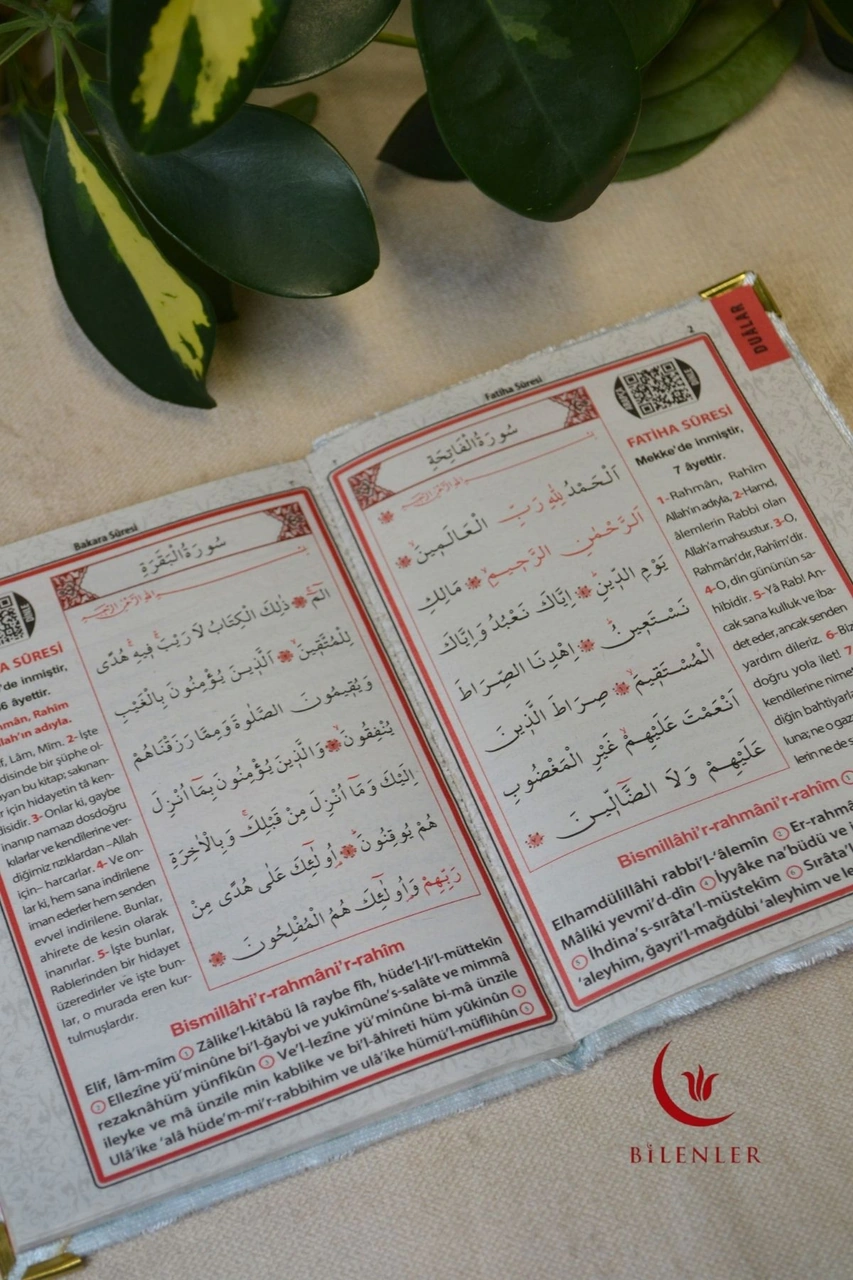 DUÂLAR
2
Fatiha Sûresi
سُورَةُ الْفَاتِحَةِ
اَلْحَمْدُ لِلّٰهِ رَبِّ الْعَالَمٖينَۙ
اَلرَّحْمٰنِ الرَّحٖيمِۙ مَالِكِ
يَوْمِ الدّٖينِۜ اِيَّاكَ نَعْبُدُ وَاِيَّاكَ
نَسْتَعٖينُۜ اِهْدِنَا الصِّرَاطَ
الْمُسْتَقٖيمَۙ صِرَاطَ الَّذٖينَ
اَنْعَمْتَ عَلَيْهِمْۙ غَيْرِ الْمَغْضُوبِ
عَلَيْهِمْ وَلَا الضَّٓالّٖينَ
FATİHA SÛRESİ
Mekke'de inmiştir,
7 âyettir.
1-Rahmân, Rahîm
Allah'ın adıyla, 2-Hamd,
âlemlerin Rabbi olan
Allah'a mahsustur. 3-O,
Rahmân'dır, Rahîm'dir.
4-O, din gününün sa-
hibidir. 5-Yâ Rab! An-
cak sana kulluk ve iba-
det eder, ancak senden
yardım dileriz. 6- Biz
doğru yola ilet! 7
kendilerine nime
diğin bahtiyarla
luna; ne o gaz
lerin ne de s
Bismillâhi'r-rahmâni'r-rahîm 1
Elhamdülillâhi rabbi'l-'âlemîn 2 Er-rahmâ
Mâliki yevmi'd-dîn 4 İyyâke na'büdü ve i
5 İhdina's-sırâta'l-müstekîm 6 Sırâta'l
'aleyhim, ğayri'l-mağdûbi 'aleyhim ve le
Bakara Sûresi
سُورَةُ الْبَقَرَةِ
الٓمٓۚ ذٰلِكَ الْكِتَابُ لَا رَيْبَۚ فٖيهِۚ هُدًى
لِلْمُتَّقٖينَۙ اَلَّذٖينَ يُؤْمِنُونَ بِالْغَيْبِ
وَيُقٖيمُونَ الصَّلٰوةَ وَمِمَّا رَزَقْنَاهُمْ
يُنْفِقُونَۙ وَالَّذٖينَ يُؤْمِنُونَ بِمَٓا اُنْزِلَ
اِلَيْكَ وَمَٓا اُنْزِلَ مِنْ قَبْلِكَۚ وَبِالْاٰخِرَةِ
هُمْ يُوقِنُونَۜ اُو۬لٰٓئِكَ عَلٰى هُدًى مِنْ
رَبِّهِمْ وَاُو۬لٰٓئِكَ هُمُ الْمُفْلِحُونَ
A SÛRESİ
'de inmiştir,
6 âyettir.
mân, Rahîm
lah'ın adıyla.
if, Lâm, Mîm. 2- İşte
disinde bir şüphe ol-
yan bu kitap; sakınan-
r için hidayetin tâ ken-
disidir. 3- Onlar ki, gaybe
inanıp namazı dosdoğru
kılarlar ve kendilerine ver-
diğimiz rızıklardan –Allah
için– harcarlar. 4- Ve on-
lar ki, hem sana indirilene
iman ederler hem senden
evvel indirilene. Bunlar,
ahirete de kesin olarak
inanırlar. 5- İşte bunlar,
Rablerinden bir hidayet
üzeredirler ve işte bun-
lar, o murada eren kur-
tulmuşlardır.
Bismillâhi'r-rahmâni'r-rahîm
Elif, lâm-mîm 1 Zâlike'l-kitâbü lâ raybe fîh, hüde'l-li'l-müttekîn
2 Ellezîne yü'minûne bi'l-ğaybi ve yukîmûne's-salâte ve mimmâ
rezaknâhüm yünfikûn 3 Ve'l-lezîne yü'minûne bi-mâ ünzile
ileyke ve mâ ünzile min kablike ve bi'l-âhireti hüm yûkinûn 4
Ulâ'ike 'alâ hüde'm-mi'r-rabbihim ve ulâ'ike hümü'l-müflihûn 5
BİLENLER